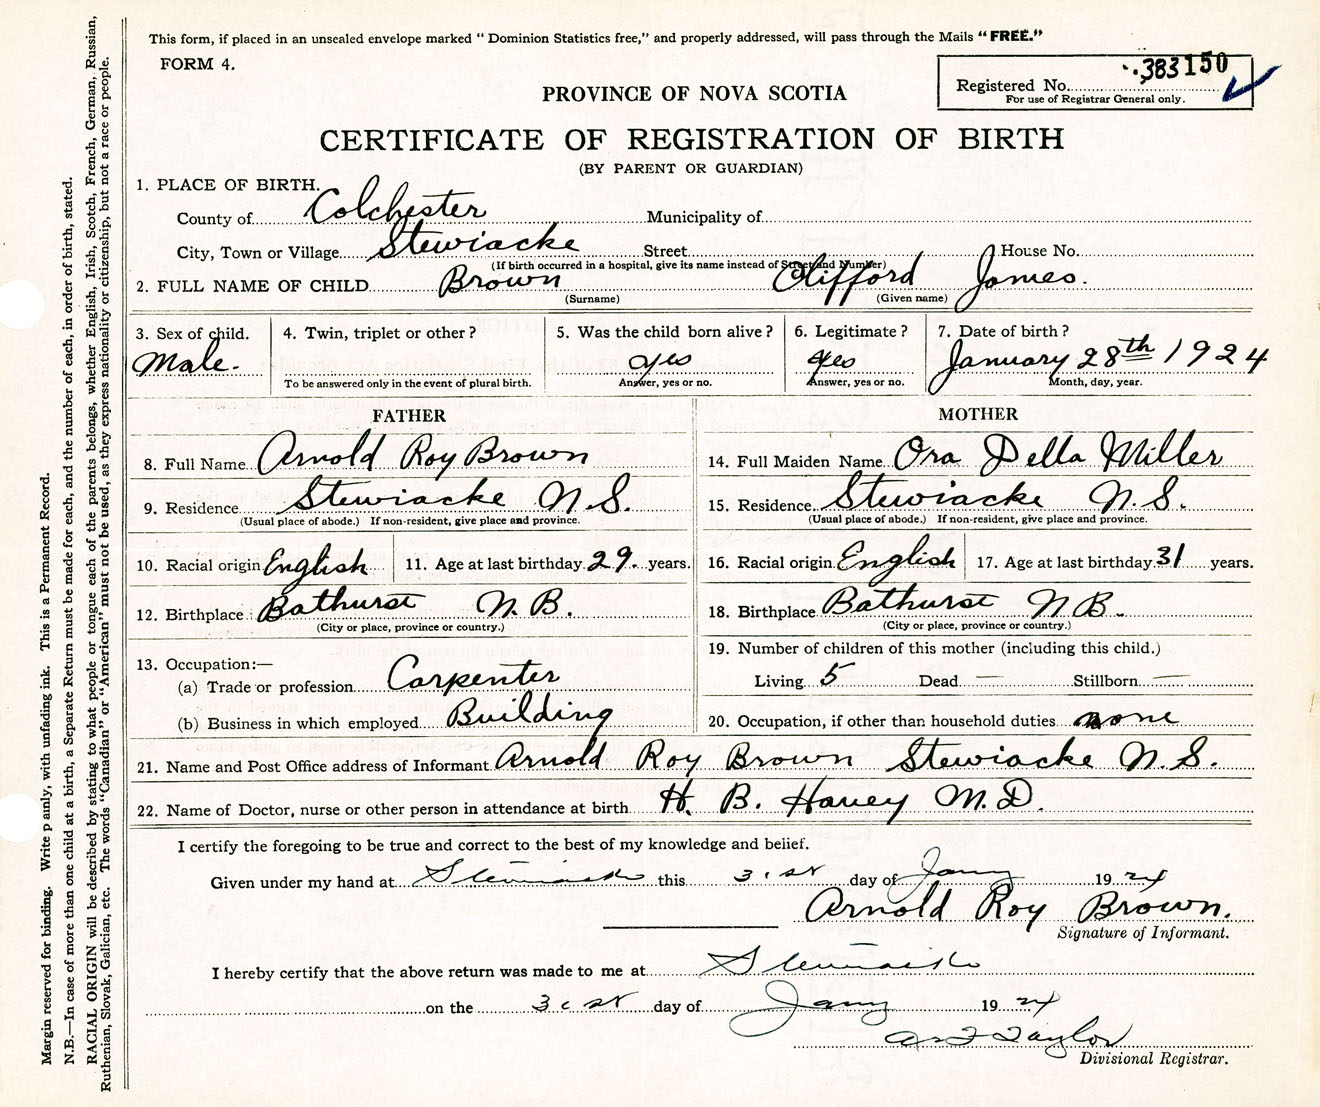 This form, if placed in an unsealed envelope marked “ Dominion Statistics free,” and properly addressed, will pass through the Mails “FREE.”
FORM 4.
Registered No. 383150
For use of Registrar General only.
PROVINCE OF NOVA SCOTIA
CERTIFICATE OF REGISTRATION OF BIRTH
(BY PARENT OR GUARDIAN)
1. PLACE OF BIRTH.
County of Colchester Municipality of
City, Town or Village Stewiacke Street House No.
(If birth occurred in a hospital, give its name instead of Street and Number)
2. FULL NAME OF CHILD Brown Clifford James.
(Surname) (Given name)
3. Sex of child. 4. Twin, triplet or other? 5. Was the child born alive? 6. Legitimate? 7. Date of birth?
Male. yes yes January 28th 1924
To be answered only in the event of plural birth. Answer, yes or no. Answer, yes or no. Month, day, year.
FATHER
8. Full Name Arnold Roy Brown
9. Residence Stewiacke N.S.
(Usual place of abode.) If non-resident, give place and province.
10. Racial origin English 11. Age at last birthday 29 years.
12. Birthplace Bathurst N.B.
(City or place, province or country.)
13. Occupation:—
(a) Trade or profession Carpenter
(b) Business in which employed Building
MOTHER
14. Full Maiden Name Ora Della Miller
15. Residence Stewiacke N.S.
(Usual place of abode.) If non-resident, give place and province.
16. Racial origin English 17. Age at last birthday 31 years.
18. Birthplace Bathurst N.B.
(City or place, province or country.)
19. Number of children of this mother (including this child.)
Living 5 Dead — Stillborn —
20. Occupation, if other than household duties none
21. Name and Post Office address of Informant Arnold Roy Brown Stewiacke N.S.
22. Name of Doctor, nurse or other person in attendance at birth H. B. Havey M.D.
I certify the foregoing to be true and correct to the best of my knowledge and belief.
Given under my hand at Stewiacke this 31st day of Jany 1924
Arnold Roy Brown.
Signature of Informant.
I hereby certify that the above return was made to me at Stewiacke
on the 31st day of Jany 1924
Taylor
Divisional Registrar.
Margin reserved for binding. Write p ainly, with unfading ink. This is a Permanent Record.
N.B.—In case of more than one child at a birth, a Separate Return must be made for each, and the number of each, in order of birth, stated.
RACIAL ORIGIN will be described by stating to what people or tongue each of the parents belongs, whether English, Irish, Scotch, French, German, Russian,
Ruthenian, Slovak, Galician, etc. The words “Canadian” or “American” must not be used, as they express nationality or citizenship, but not a race or people.